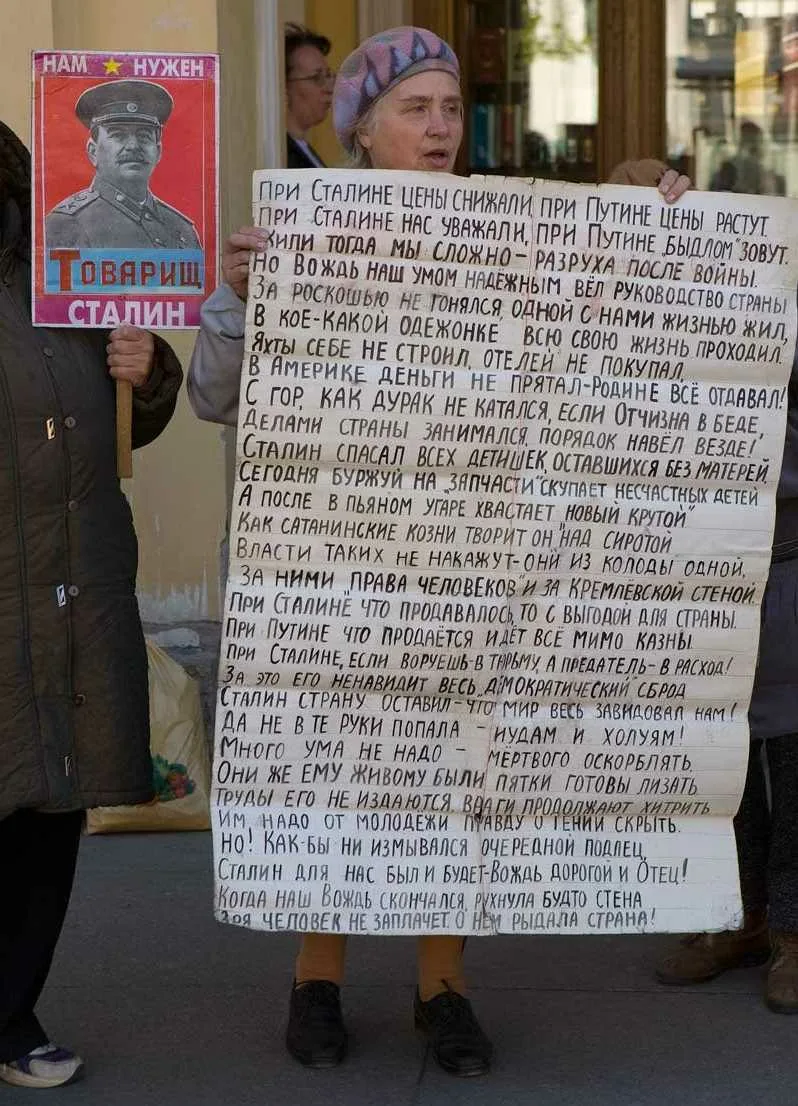 НАМ НУЖЕН
ТОВАРИЩ
СТАЛИН
ПРИ СТАЛИНЕ ЦЕНЫ СНИЖАЛИ, ПРИ ПУТИНЕ ЦЕНЫ РАСТУТ.
ПРИ СТАЛИНЕ НАС УВАЖАЛИ, ПРИ ПУТИНЕ „БЫДЛОМ" ЗОВУТ.
ЖИЛИ ТОГДА МЫ СЛОЖНО – РАЗРУХА ПОСЛЕ ВОЙНЫ.
НО ВОЖДЬ НАШ УМОМ НАДЁЖНЫМ ВЁЛ РУКОВОДСТВО СТРАНЫ
ЗА РОСКОШЬЮ НЕ ГОНЯЛСЯ, ОДНОЙ С НАМИ ЖИЗНЬЮ ЖИЛ,
В КОЕ-КАКОЙ ОДЕЖОНКЕ ВСЮ СВОЮ ЖИЗНЬ ПРОХОДИЛ.
ЯХТЫ СЕБЕ НЕ СТРОИЛ, ОТЕЛЕЙ НЕ ПОКУПАЛ,
В АМЕРИКЕ ДЕНЬГИ НЕ ПРЯТАЛ-РОДИНЕ ВСЁ ОТДАВАЛ!
С ГОР, КАК ДУРАК НЕ КАТАЛСЯ, ЕСЛИ ОТЧИЗНА В БЕДЕ,
ДЕЛАМИ СТРАНЫ ЗАНИМАЛСЯ, ПОРЯДОК НАВЁЛ ВЕЗДЕ!
СТАЛИН СПАСАЛ ВСЕХ ДЕТИШЕК, ОСТАВШИХСЯ БЕЗ МАТЕРЕЙ,
СЕГОДНЯ БУРЖУЙ НА „ЗАПЧАСТИ" СКУПАЕТ НЕСЧАСТНЫХ ДЕТЕЙ
А ПОСЛЕ В ПЬЯНОМ УГАРЕ ХВАСТАЕТ „НОВЫЙ КРУТОЙ"
КАК САТАНИНСКИЕ КОЗНИ ТВОРИТ ОН НАД СИРОТОЙ
ВЛАСТИ ТАКИХ НЕ НАКАЖУТ-ОНИ ИЗ КОЛОДЫ ОДНОЙ,
ЗА НИМИ „ПРАВА ЧЕЛОВЕКОВ" И ЗА КРЕМЛЁВСКОЙ СТЕНОЙ.
ПРИ СТАЛИНЕ ЧТО ПРОДАВАЛОСЬ, ТО С ВЫГОДОЙ ДЛЯ СТРАНЫ.
ПРИ ПУТИНЕ ЧТО ПРОДАЁТСЯ ИДЁТ ВСЁ МИМО КАЗНЫ.
ПРИ СТАЛИНЕ, ЕСЛИ ВОРУЕШЬ-В ТЮРЬМУ, А ПРЕДАТЕЛЬ-В РАСХОД!
ЗА ЭТО ЕГО НЕНАВИДИТ ВЕСЬ „ДЕМОКРАТИЧЕСКИЙ" СБРОД
СТАЛИН СТРАНУ ОСТАВИЛ-ЧТО МИР ВЕСЬ ЗАВИДОВАЛ НАМ!
ДА НЕ В ТЕ РУКИ ПОПАЛА – ИУДАМ И ХОЛУЯМ!
МНОГО УМА НЕ НАДО – МЁРТВОГО ОСКОРБЛЯТЬ,
ОНИ ЖЕ ЕМУ ЖИВОМУ БЫЛИ ПЯТКИ ГОТОВЫ ЛИЗАТЬ
ТРУДЫ ЕГО НЕ ИЗДАЮТСЯ, ВРАГИ ПРОДОЛЖАЮТ ХИТРИТЬ
ИМ НАДО ОТ МОЛОДЕЖИ ПРАВДУ О ГЕНИИ СКРЫТЬ.
НО! КАК-БЫ НИ ИЗМЫВАЛСЯ ОЧЕРЕДНОЙ ПОДЛЕЦ,
СТАЛИН ДЛЯ НАС БЫЛ И БУДЕТ-ВОЖДЬ ДОРОГОЙ И ОТЕЦ!
КОГДА НАШ ВОЖДЬ СКОНЧАЛСЯ, РУХНУЛА БУДТО СТЕНА
ЗРЯ ЧЕЛОВЕК НЕ ЗАПЛАЧЕТ. О НЁМ РЫДАЛА СТРАНА!